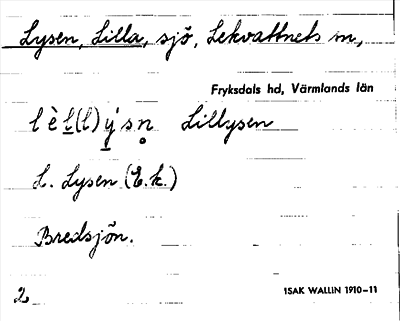 Lysen, Lilla, sjö, Lekvattnets sn,
Fryksdals hd, Värmlands län
l è l̲(l) ý s n̥ Lillysen
L. Lysen (E.k.)
Bredsjön.
2
ISAK WALLIN 1910–11